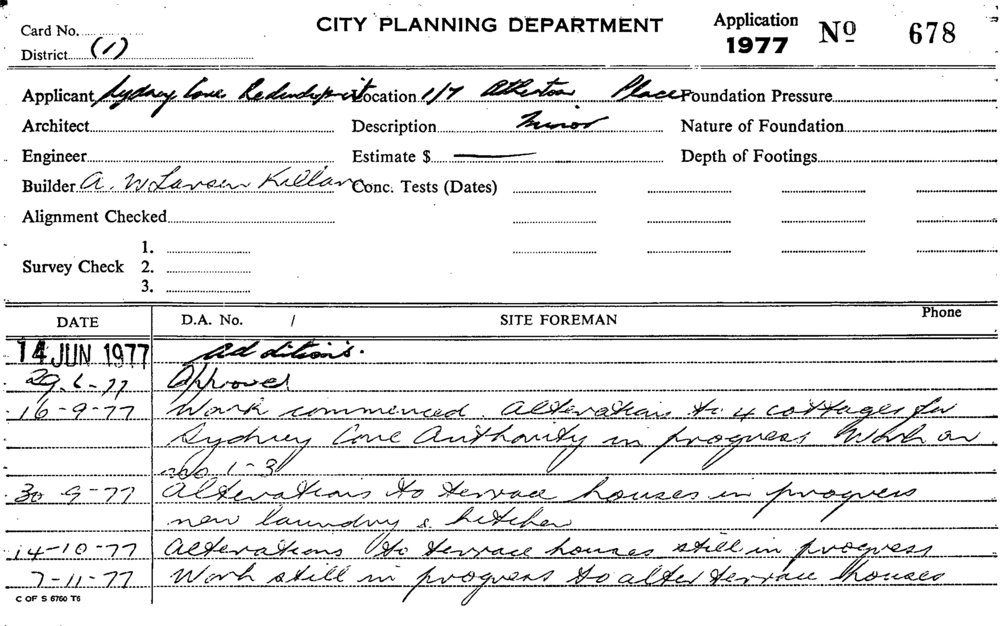 Card No.
CITY PLANNING DEPARTMENT
Application 1977 No 678
District (1)
Applicant Sydney Cove Location 1/7 Atherton Place Foundation Pressure
Architect Description Minor Nature of Foundation
Engineer Estimate $ — Depth of Footings
Builder A. W Larsen Conc. Tests (Dates)
Alignment Checked
1.
Survey Check 2.
3.
DATE D.A. No. / SITE FOREMAN Phone
14 JUN 1977 Additions.
29.6-77 Approved
16-9-77 Work commenced. Alterations to 4 cottages for
Sydney Cove Authority in progress Work on
no 1-3
30-9-77 Alterations to terrace houses in progress
new laundry & kitchen
14-10-77 Alterations to terrace houses still in progress
7-11-77 Work still in progress to alter terrace houses
C OF S 6760 T6